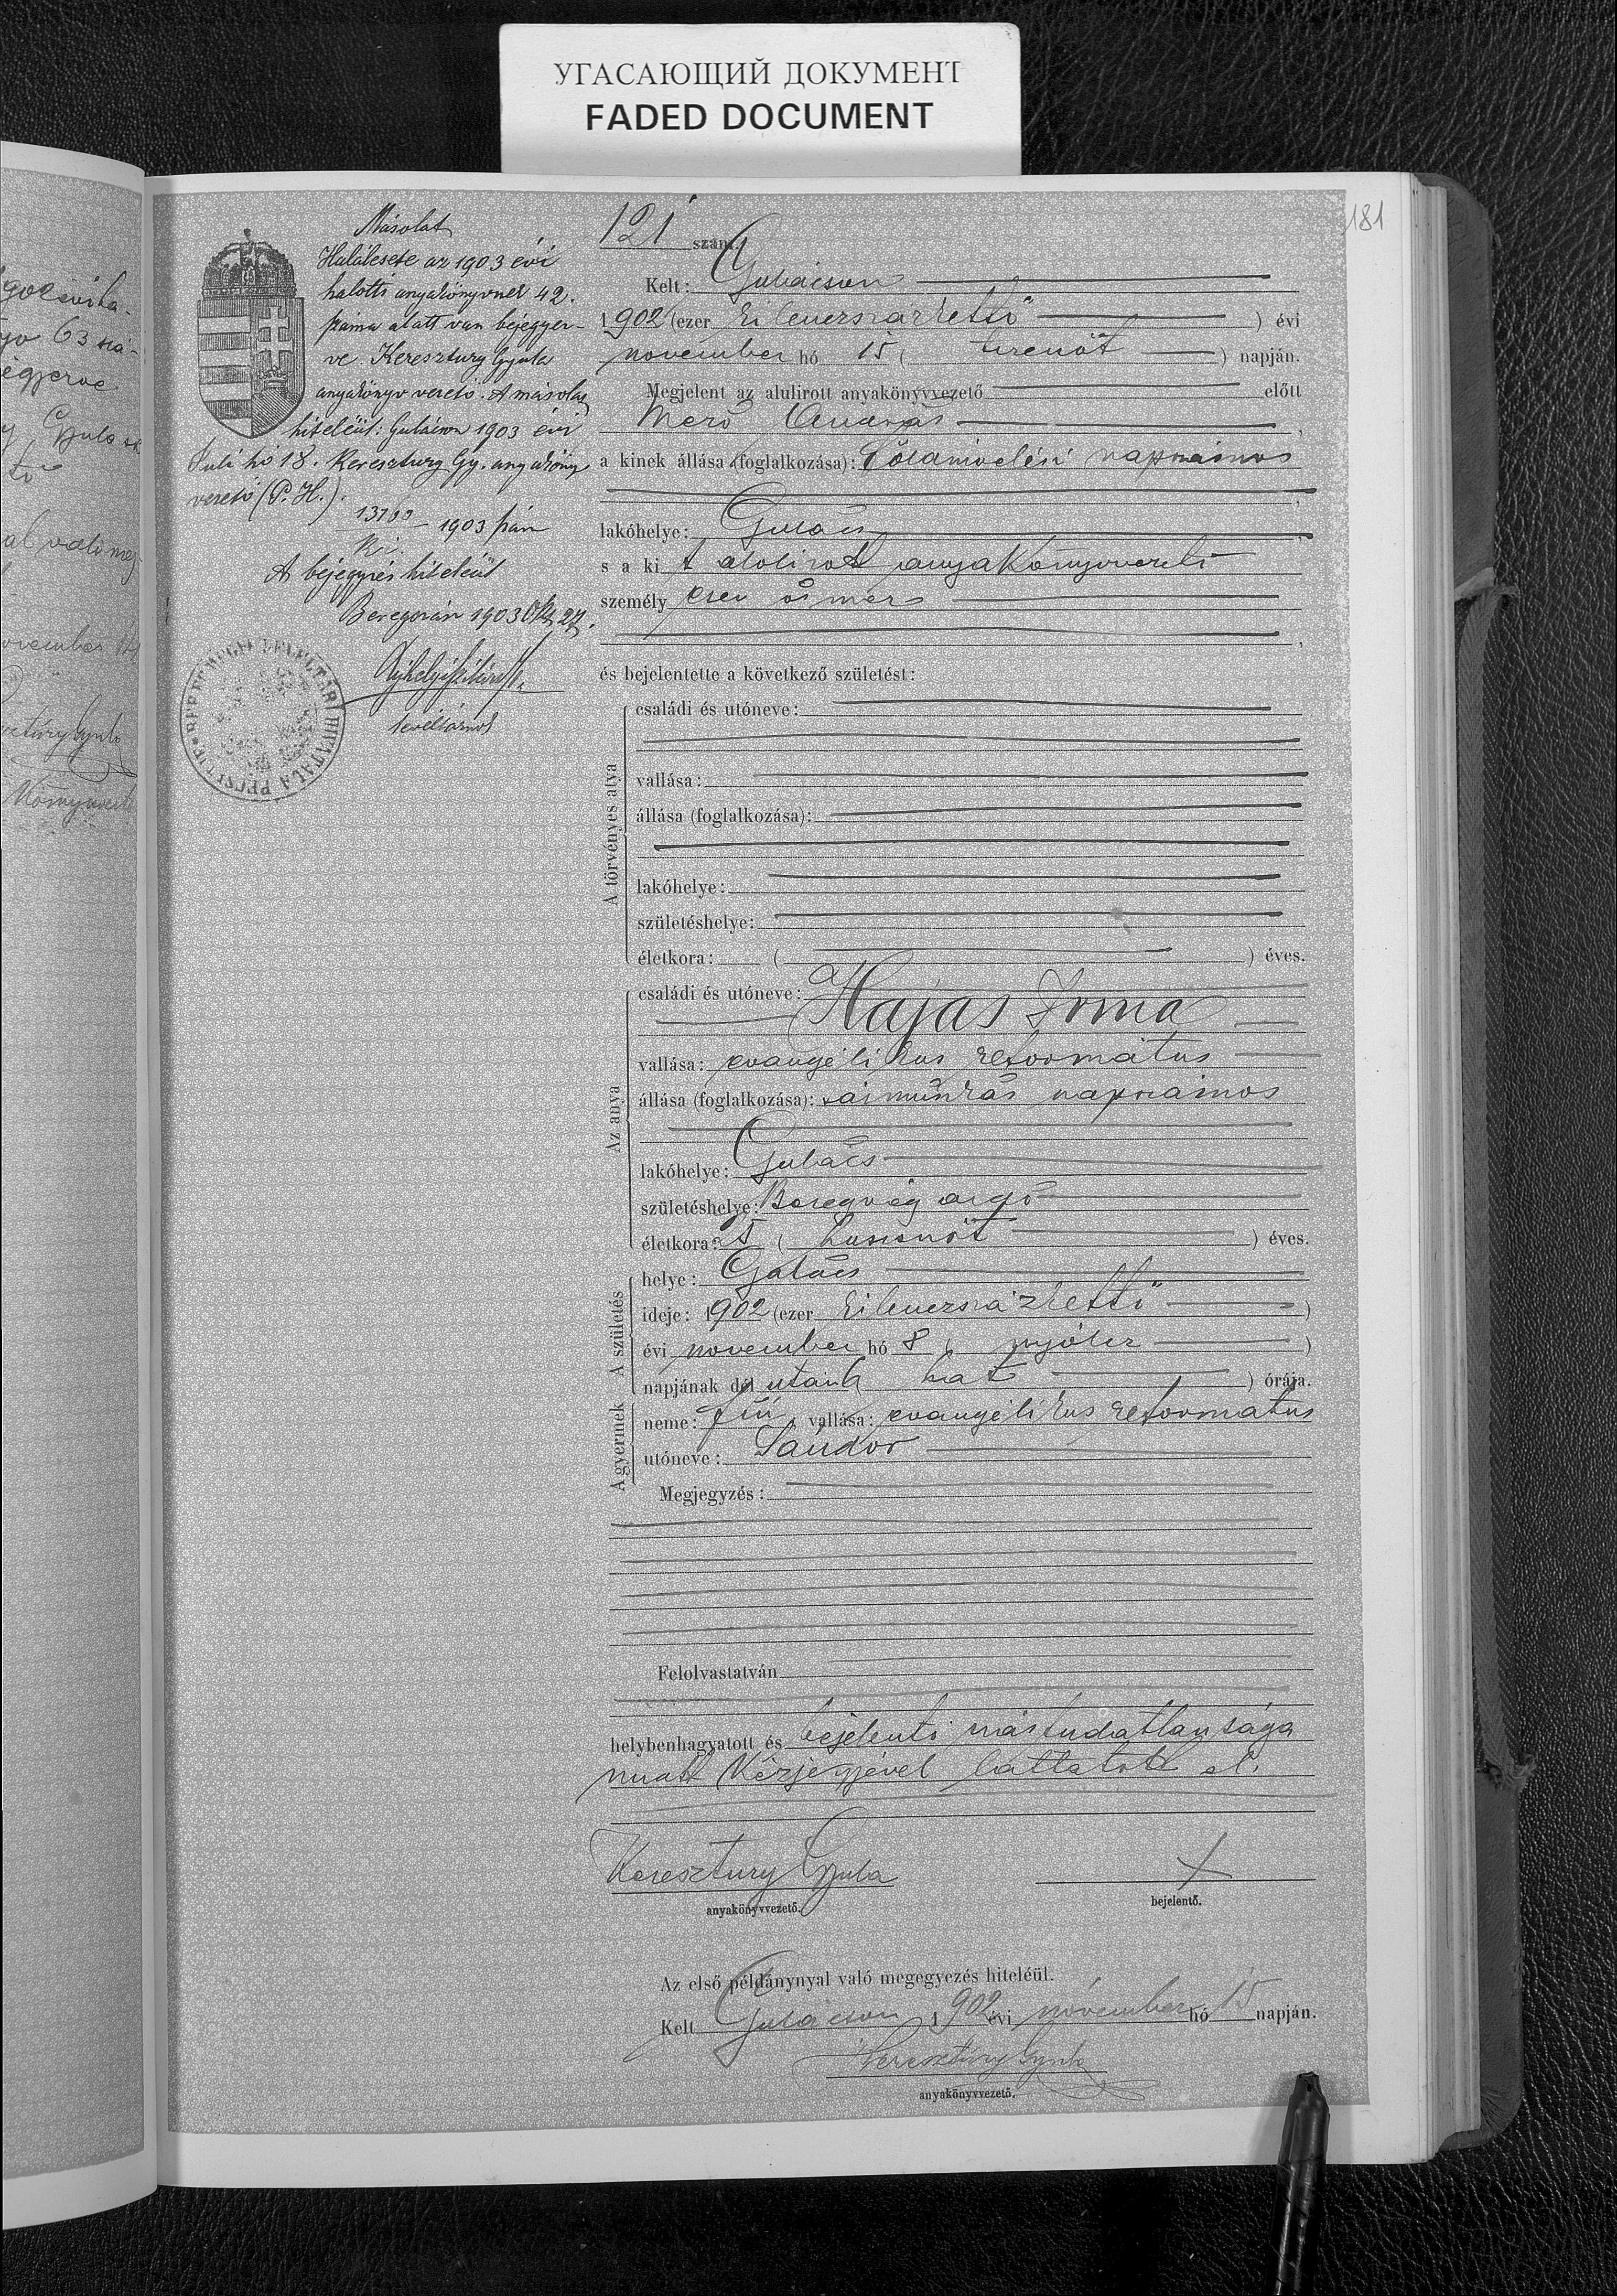 УГАСАЮЩИЙ ДОКУМЕНТ
FADED DOCUMENT
181
Másolat
Halálesete az 1903 évi
halotti anyakönyvnek 42.
száma alatt van bejegyez-
ve Keresztury Gyula
anyakönyv vezető. A másolat
hiteléül: Gulácson 1903 évi
Juli hó 18. Keresztury Gy. anyakönyv
vezető (P. H.).
1903 szám
A bejegyzés hiteléül
Beregszász 1903 Okt 27.
levéltárnok
121 szám.
Kelt: Gulácson
1902 (ezer kilencszázkettő) évi
november hó 15 (tizenöt) napján.
Megjelent az alulirott anyakönyvvezető előtt
Mező András,
a kinek állása (foglalkozása): földmivelési napszámos
lakóhelye: Gulács,
s a kit alolirott anyakönyvvezető
személyesen ösmer
és bejelentette a következő születést:
A törvényes atya
családi és utóneve:
vallása:
állása (foglalkozása):
lakóhelye:
születéshelye:
életkora: ( ) éves.
Az anya
családi és utóneve:
Hajas Irma
vallása: evangélikus református
állása (foglalkozása): napszámos
lakóhelye: Gulács
születéshelye: Beregvégardó
életkora: 25 (huszonöt) éves.
A születés
helye: Gulács
ideje: 1902 (ezer kilencszázkettő)
évi november hó 8 (nyolcz)
napjának dél utánh hat) órája.
A gyermek
neme: fiú, vallása: evangélikus református
utóneve: Sándor
Megjegyzés:
Felolvastatván
helybenhagyatott és bejelentő irástudatlansága
miatt kézjegyével láttatott el.
Keresztury Gyula
anyakönyvvezető.
+
bejelentő.
Az első példánynyal való megegyezés hiteléül.
Kelt Gulácson 1902 évi november hó 15 napján.
Keresztury Gyula
anyakönyvvezető.